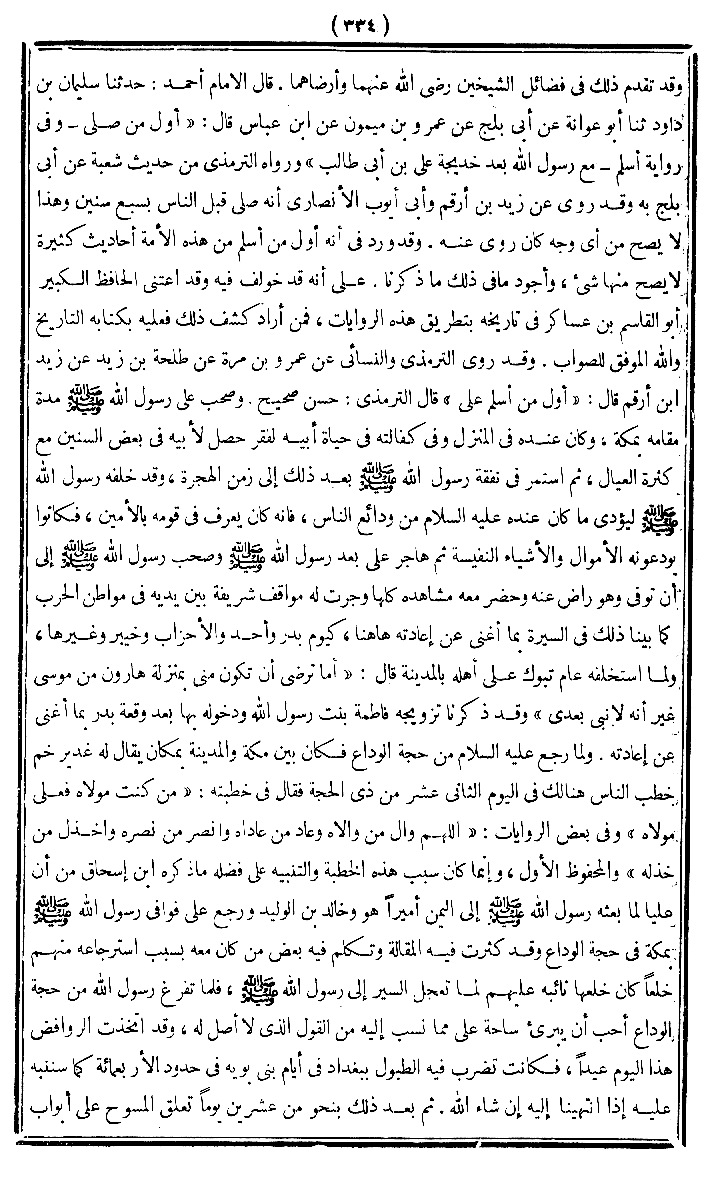 ( ٣٣٤ )
وقد تقدم ذلك فى فضائل الشيخين رضى الله عنهما وأرضاهما . قال الامام أحمد : حدثنا سليمان بن
داود ثنا أبو عوانة عن أبى بلج عن عمرو بن ميمون عن ابن عباس قال : « أول من صلى ــ وفى
رواية أسلم ــ مع رسول الله بعد خديجة على بن أبى طالب » ورواه الترمذى من حديث شعبة عن أبى
بلج به وقد روى عن زيد بن أرقم وأبى أيوب الأنصارى أنه صلى قبل الناس بسبع سنين وهذا
لا يصح من أى وجه كان روى عنه . وقد ورد فى أنه أول من أسلم من هذه الأمة أحاديث كثيرة
لايصح منها شئ ، وأجود مافى ذلك ما ذكرنا . على أنه قد خولف فيه وقد اعتنى الحافظ الكبير
أبو القاسم بن عساكر فى تاريخه بتطريق هذه الروايات ، فمن أراد كشف ذلك فعليه بكتابه التاريخ
والله الموفق للصواب . وقد روى الترمذى والنسائى عن عمرو بن مرة عن طلحة بن زيد عن زيد
ابن أرقم قال : « أول من أسلم على » قال الترمذى : حسن صحيح . وصحب على رسول الله ﷺ مدة
مقامه بمكة ، وكان عنده فى المنزل وفى كفالته فى حياة أبيه لفقر حصل لأبيه فى بعض السنين مع
كثرة العيال ، ثم استمر فى نفقة رسول الله ﷺ بعد ذلك إلى زمن الهجرة ، وقد خلفه رسول الله
ﷺ ليؤدى ما كان عنده عليه السلام من ودائع الناس ، فانه كان يعرف فى قومه بالأمين ، فكانوا
يودعونه الأموال والأشياء النفيسة ثم هاجر على بعد رسول الله ﷺ وصحب رسول الله ﷺ إلى
أن توفى وهو راض عنه وحضر معه مشاهده كلها وجرت له مواقف شريفة بين يديه فى مواطن الحرب
كما بينا ذلك فى السيرة بما أغنى عن إعادته هاهنا ، كيوم بدر وأحد والأحزاب وخيبر وغيرها ،
ولما استخلفه عام تبوك على أهله بالمدينة قال : « أما ترضى أن تكون منى بمنزلة هارون من موسى
غير أنه لانبى بعدى » وقد ذكرنا تزويجه فاطمة بنت رسول الله ودخوله بها بعد وقعة بدر بما أغنى
عن إعادته . ولما رجع عليه السلام من حجة الوداع فكان بين مكة والمدينة بمكان يقال له غدير خم
خطب الناس هنالك فى اليوم الثانى عشر من ذى الحجة فقال فى خطبته : « من كنت مولاه فعلى
مولاه » وفى بعض الروايات : « اللهم وال من والاه وعاد من عاداه وانصر من نصره واخذل من
خذله » والمحفوظ الأول ، وإنما كان سبب هذه الخطبة والتنبيه على فضله ماذكره ابن إسحاق من أن
عليا لما بعثه رسول الله ﷺ إلى اليمن أميراً هو وخالد بن الوليد ورجع على فوافى رسول الله ﷺ
بمكة فى حجة الوداع وقد كثرت فيه المقالة وتكلم فيه بعض من كان معه بسبب استرجاعه منهم
خلعاً كان خلعها نائبه عليهم لما تعجل السير إلى رسول الله ﷺ ، فلما تفرغ رسول الله من حجة
الوداع أحب أن يبرئ ساحة على مما نسب إليه من القول الذى لا أصل له ، وقد اتخذت الروافض
هذا اليوم عيداً ، فكانت تضرب فيه الطبول ببغداد فى أيام بنى بويه فى حدود الأربعمائة كما سننبه
عليه إذا انتهينا إليه إن شاء الله . ثم بعد ذلك بنحو من عشرين يوماً تعلق المسوح على أبواب